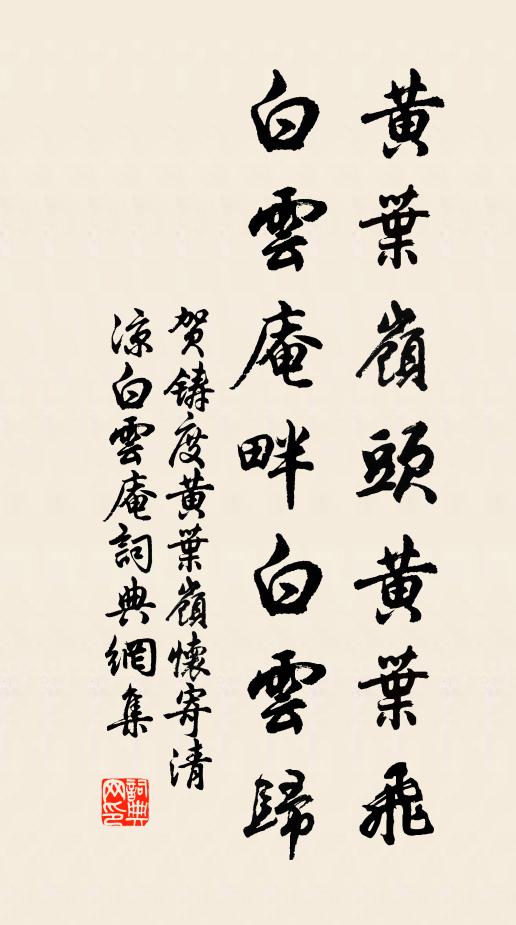 黃葉嶺頭黃葉飛
白雲庵畔白雲歸
贺鑄度黃葉嶺懷寄清
凉白雲庵詞典網集
詞典
网印